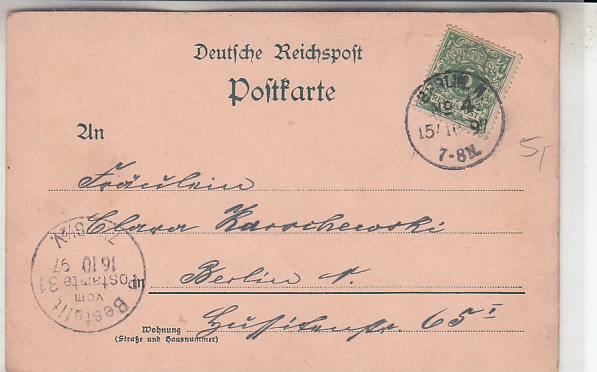 Deutsche Reichspost
Postkarte
BERLIN N
No 4
15/10 97
7-8N.
An
Fräulein
Clara Karschewski
in Berlin N.
Wohnung Hussitenstr. 65 I
(Straße und Hausnummer)
Bestellt
vom
Postamte 31
16 10 97